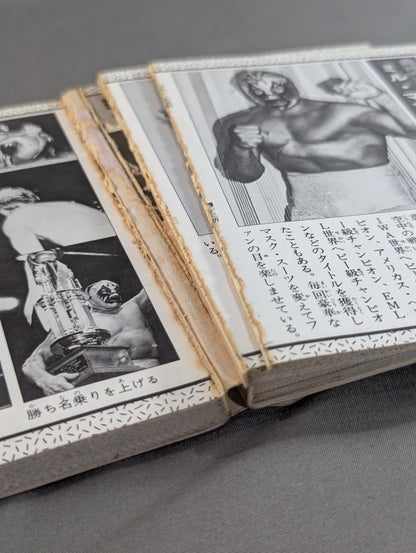 勝ち名乗りを上げる
いる。
空中の
アメリカス
ピオン、EML
世界ヘビー級チャンピオ
ンなどのタイトルを獲得し
たこともある。毎回豪華な
マスク・スーツを変えてフ
ァンの目を楽しませている。